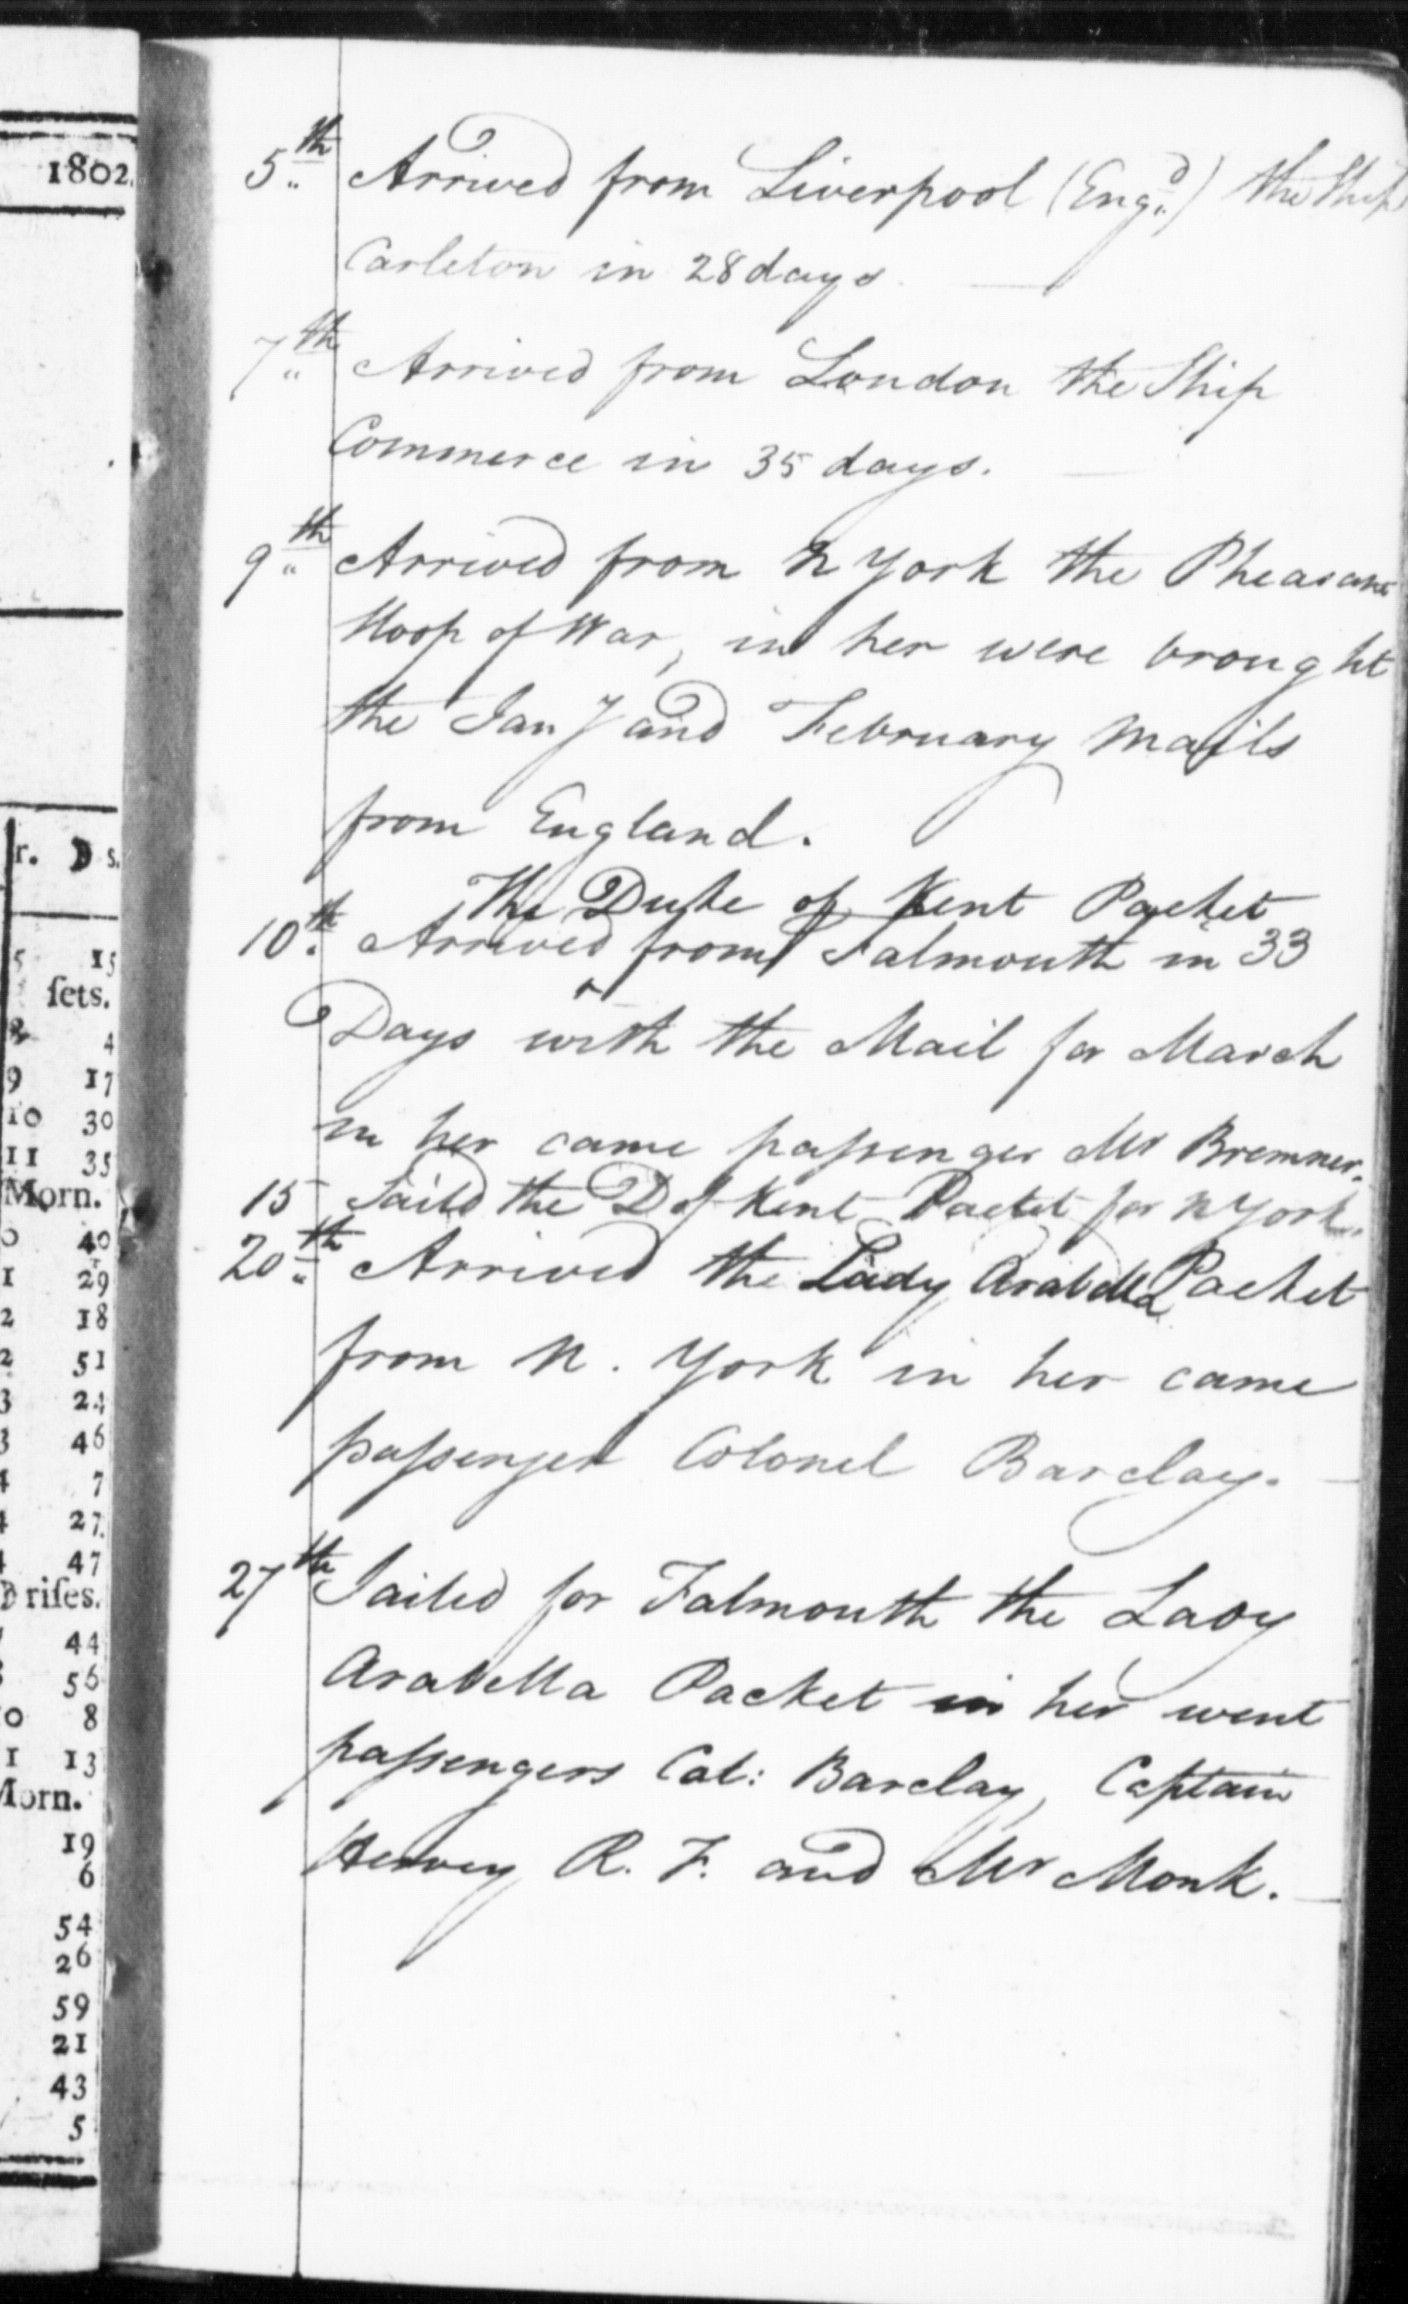 1802.
r. ☽ s.
5 15
sets.
2 4
9 17
10 30
11 35
Morn.
0 40
1 29
2 18
2 51
3 24
3 46
4 7
4 27
4 47
☽ rises.
44
56
0 8
1 13
Morn.
19
6
54
26
59
21
43
5
5th Arrived from Liverpool (Engd) the Ship
Carleton in 28 days.
7th Arrived from London the Ship
Commerce in 35 days.
9th Arrived from N York the Pheasant
Sloop of War, in her were brought
the Jany and February Mails
from England.
The Duke of Kent Packet
10th Arrived from Falmouth in 33
Days with the Mail for March
in her came passenger Mr Bremner.
15 Saild the D of Kent Packet for N York.
20th Arrived the Lady Arabella Packet
from N. York in her came
passenger Colonel Barclay.
27th Sailed for Falmouth the Lady
Arabella Packet in her went
passengers Col: Barclay, Captain
Hervey R. F. and Mr Monk.